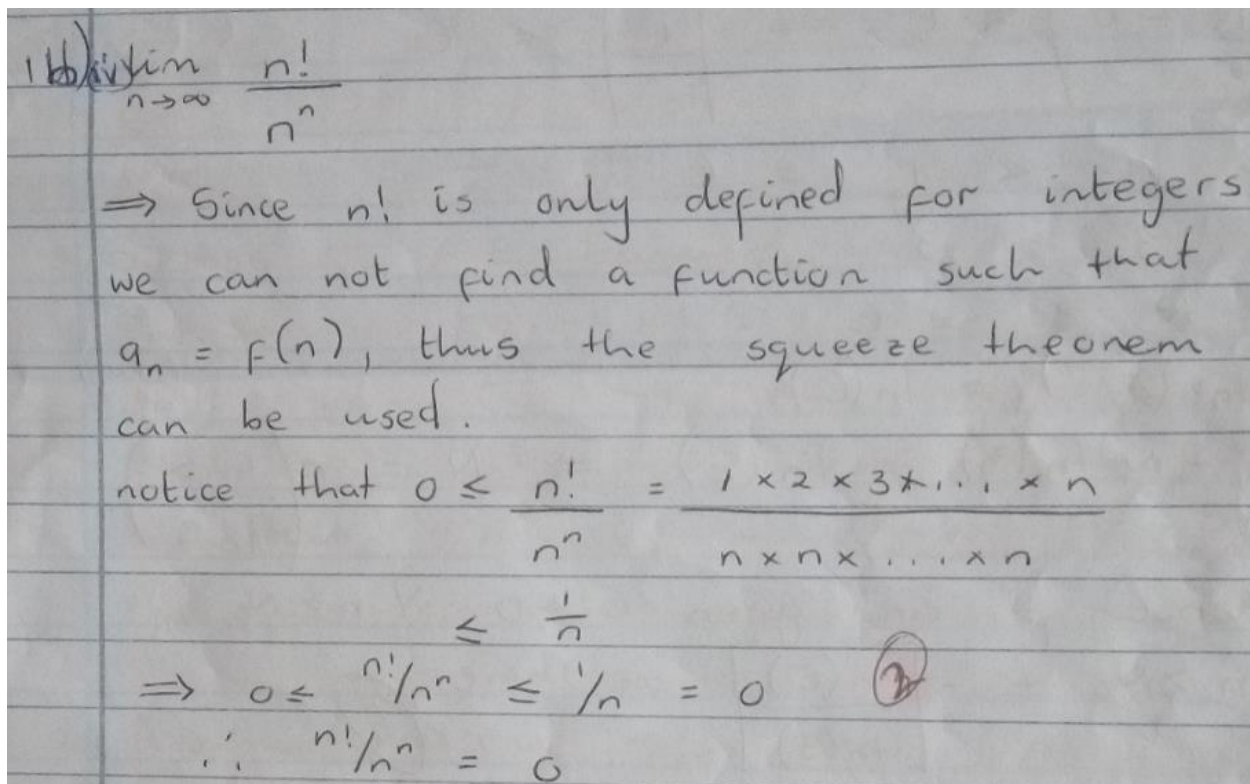 lim n!
n→∞ nⁿ
⇒ Since n! is only defined for integers
we can not find a function such that
aₙ = f(n), thus the squeeze theorem
can be used.
notice that 0 ≤ n! = 1 × 2 × 3 × ... × n
nⁿ n × n × ... × n
≤ 1/n
⇒ 0 ≤ n!/nⁿ ≤ 1/n = 0
∴ n!/nⁿ = 0